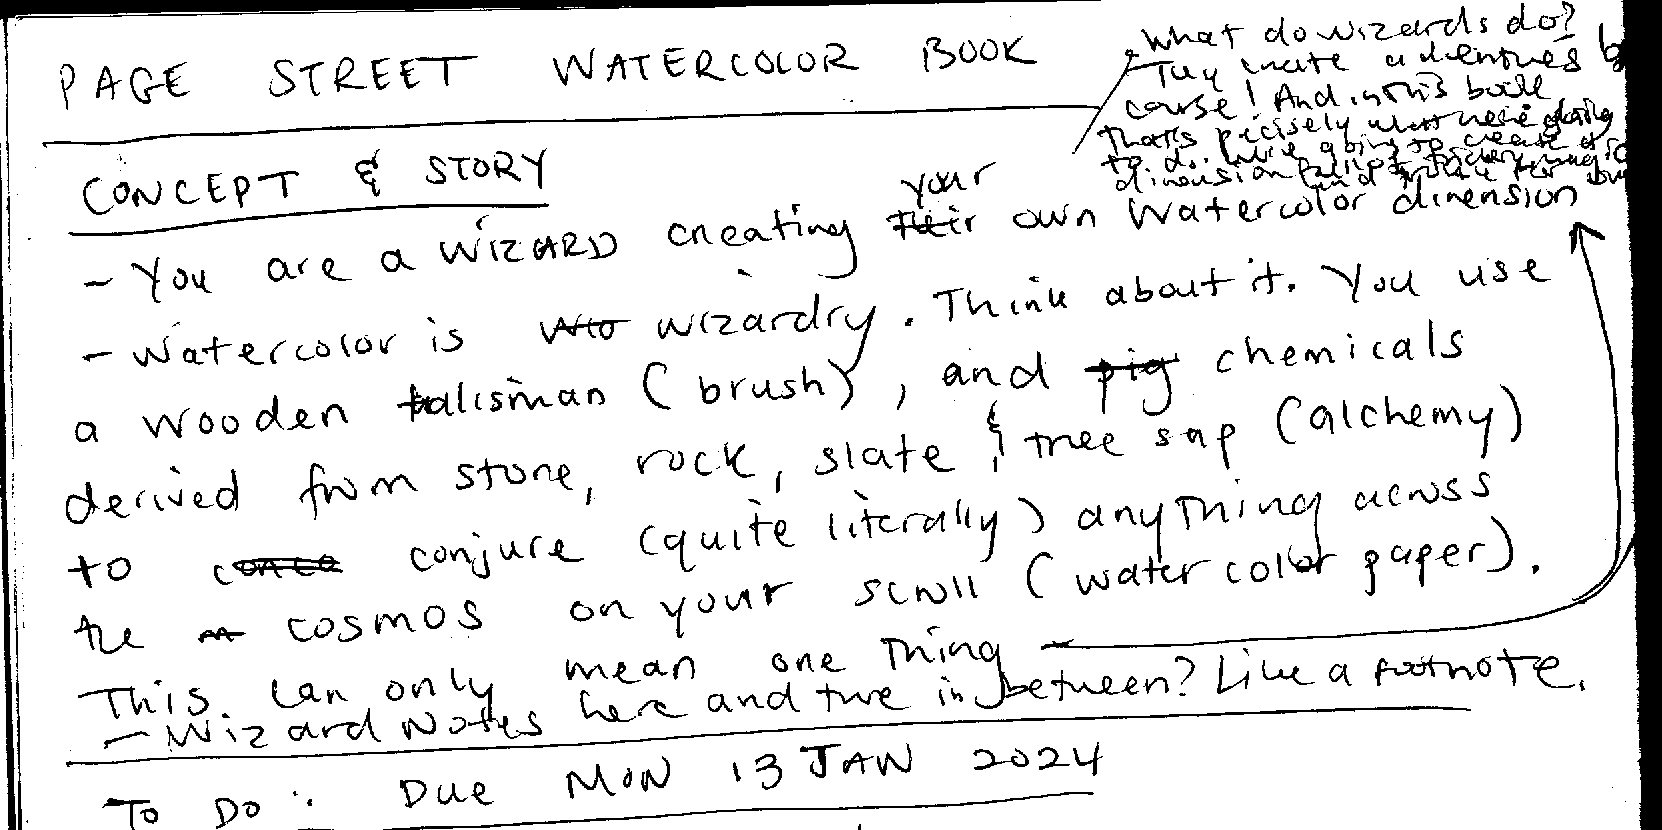 PAGE STREET WATERCOLOR BOOK
What do wizards do?
They create adventures
course! And in this book
that's precisely what we're going
to do. We're going to create a
dimension
CONCEPT & STORY
your
- You are a WIZARD creating their own watercolor dimension
- Watercolor is wizardry. Think about it. You use
a wooden talisman (brush), and pig chemicals
derived from stone, rock, slate & tree sap (alchemy)
to conjure (quite literally) anything across
the cosmos on your scroll (watercolor paper).
This can only mean one thing —
- Wizard Notes here and there in between? Like a footnote.
TO DO: Due MON 13 JAN 2024